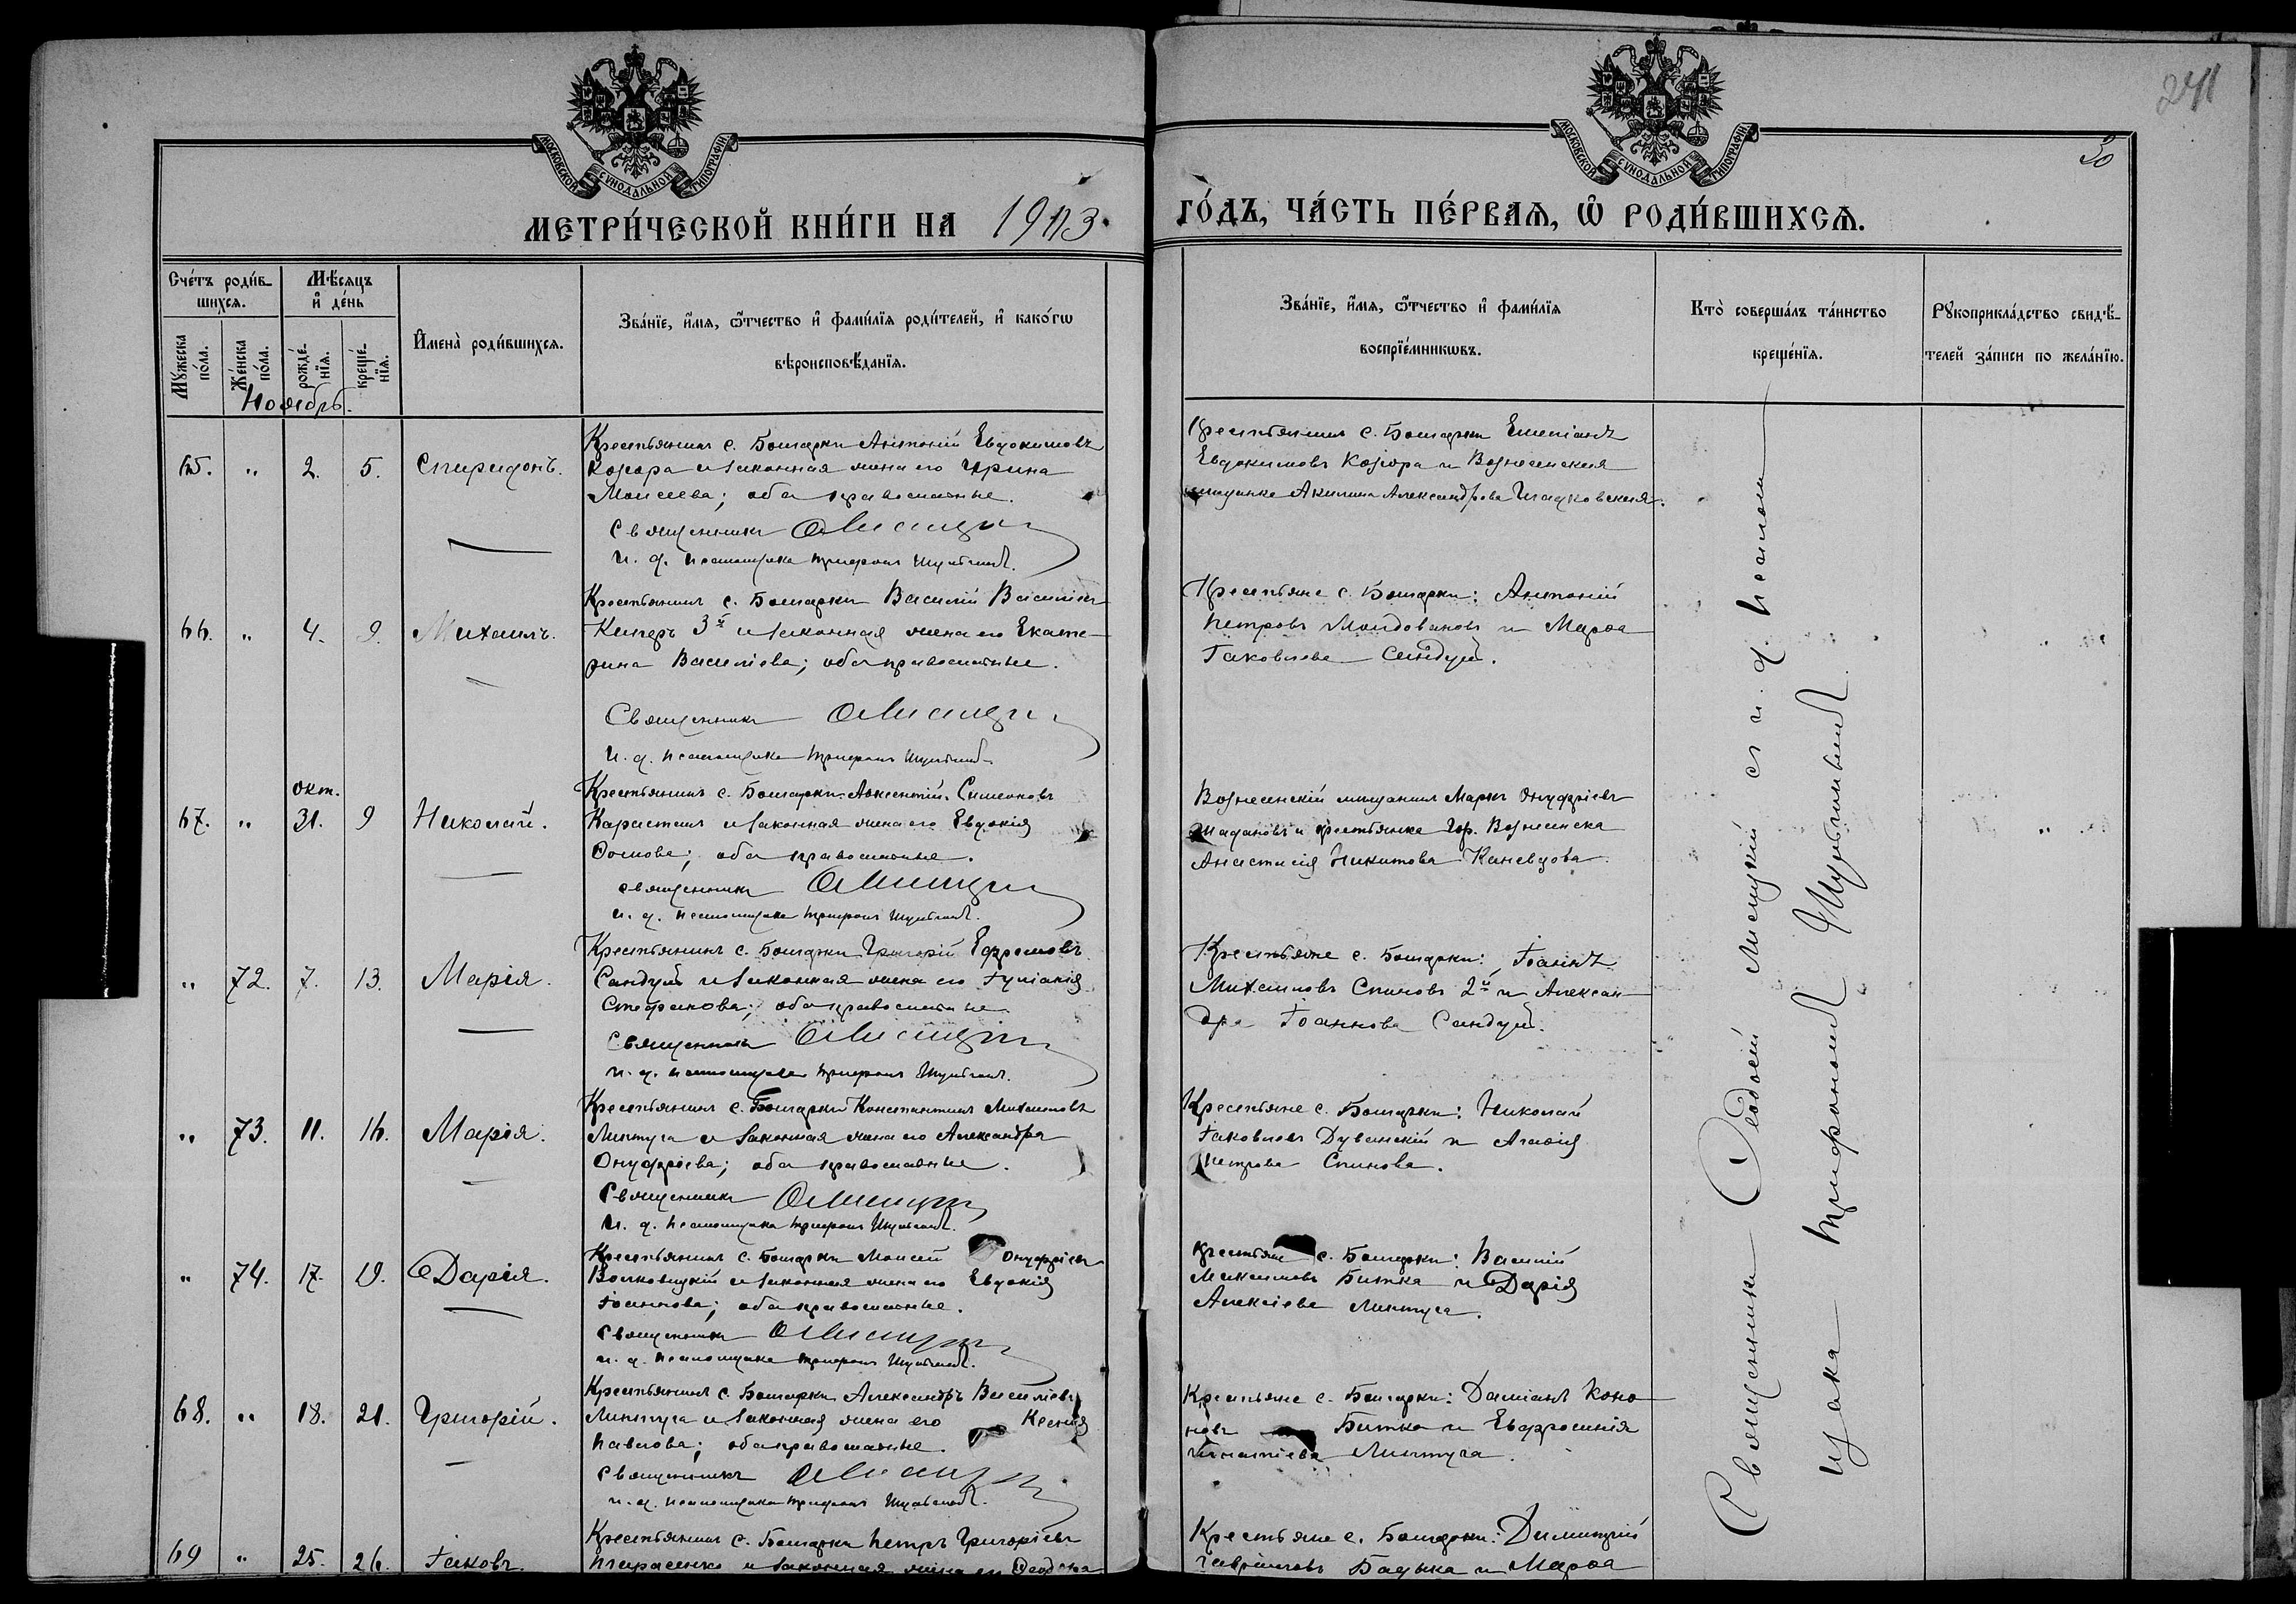 241
30
МОСКОВСКОЙ СУНОДАЛЬНОЙ ТИПОГРАФІИ.
МОСКОВСКОЙ СУНОДАЛЬНОЙ ТИПОГРАФІИ.
МЕТРИ́ЧЕСКОЙ КНИ́ГИ НА 1903.
ГО́ДЪ, ЧА́СТЬ ПЕ́РВАѦ, Ѽ РОДИ́ВШИХСѦ.
Сче́тъ роди́в-
шихсѧ.
Мꙋ́жеска по́ла.
Же́нска по́ла.
Мѣ́сѧцъ
и҆ де́нь
рожде́нїѧ.
креще́нїѧ.
И҆мена̀ роди́вшихсѧ.
Зва́нїе, и҆́мѧ, ѻ҆́тчество и҆ фамѝлїѧ роди́телей, и҆ како́гѡ
вѣроисповѣ́данїѧ.
Зва́нїе, и҆́мѧ, ѻ҆́тчество и҆ фами́лїѧ
воспрїе́мникѡвъ.
Кто̀ соверша́лъ та́инство
креще́нїѧ.
Рꙋкоприкла́дство свидѣ́-
телей за́писи по жела́нїю.
Ноябрь.
65. " 2. 5. Спиридонъ.
Крестьянинъ с. Болгарки Антоній Евдокимовъ
Козора и законная жена его Ирина
Моисеева; оба православные.
Священникъ
и. д. псаломщика Трифонъ
Крестьянинъ с. Болгарки Емеліанъ
Евдокимовъ Козора и Вознесенская
мещанка Акилина Александрова
66. " 4. 9. Михаилъ.
Крестьянинъ с. Болгарки Василій Василіевъ
Киперъ 3й и законная жена его Екате-
рина Василіева; оба православные.
Священникъ
и. д. псаломщика Трифонъ
Крестьяне с. Болгарки: Антоній
Петровъ Молдовановъ и Марѳа
Іаковлева Сандул.
67. " окт. 31. 9 Николай.
Крестьянинъ с. Болгарки Авксентій Симеоновъ
и законная жена его Евдокія
Ѳомова; оба православные.
Священникъ
и. д. псаломщика Трифонъ
Вознесенскій мещанинъ Маркъ Онуфріевъ
и крестьянка гор. Вознесенска
Анастасія Никитова Каневцова.
" 72. 7. 13. Марія.
Крестьянинъ с. Болгарки Григорій Ефремовъ
Сандулъ и законная жена его Іуліанія
Стефанова; оба православные
Священникъ
и. д. псаломщика Трифонъ
Крестьяне с. Болгарки: Іоаннъ
Михаиловъ Спиновъ 2й и Алексан-
дра Іоаннова Сандул.
" 73. 11. 16. Марія.
Крестьянинъ с. Болгарки Константинъ Михаиловъ
Линтуга и законная жена его Александра
Онуфріева; оба православные.
Священникъ
и. д. псаломщика Трифонъ
Крестьяне с. Болгарки: Николай
Іаковлевъ Дуванскій и Агаѳія
Петрова Спинова.
" 74. 17. 19. Дарія.
Крестьянинъ с. Болгарки Моисей Онуфріевъ
Волковицкій и законная жена его Евдокія
Іоаннова; оба православные.
Священникъ
и. д. псаломщика Трифонъ
Крестьяне с. Болгарки: Василій
Максимовъ Битка и Дарія
Алексіева Линтуга.
68. " 18. 21. Григорій.
Крестьянинъ с. Болгарки Александръ Василіевъ
Линтуга и законная жена его Ксенія
Павлова; оба православные.
Священникъ
и. д. псаломщика Трифонъ
Крестьяне с. Болгарки: Даміанъ Коно-
новъ Битка и Евфросинія
Игнатіева Линтуга.
69 " 25. 26. Іаковъ.
Крестьянинъ с. Болгарки Петръ Григоріевъ
Тарасенко и законная жена его
Крестьяне с. Болгарки: Димитрій
Гавріиловъ Бадыка и Марѳа
Священникъ Ѳеодосій Лисицкій съ и. д. псалом-
щика Трифономъ